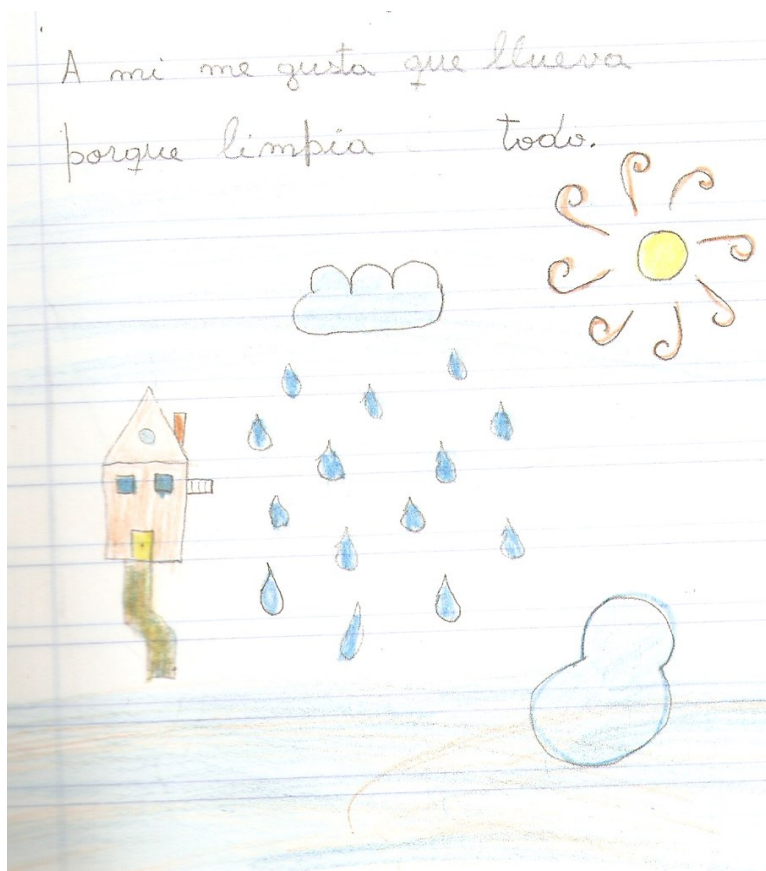 A mi me gusta que llueva
porque limpia todo.